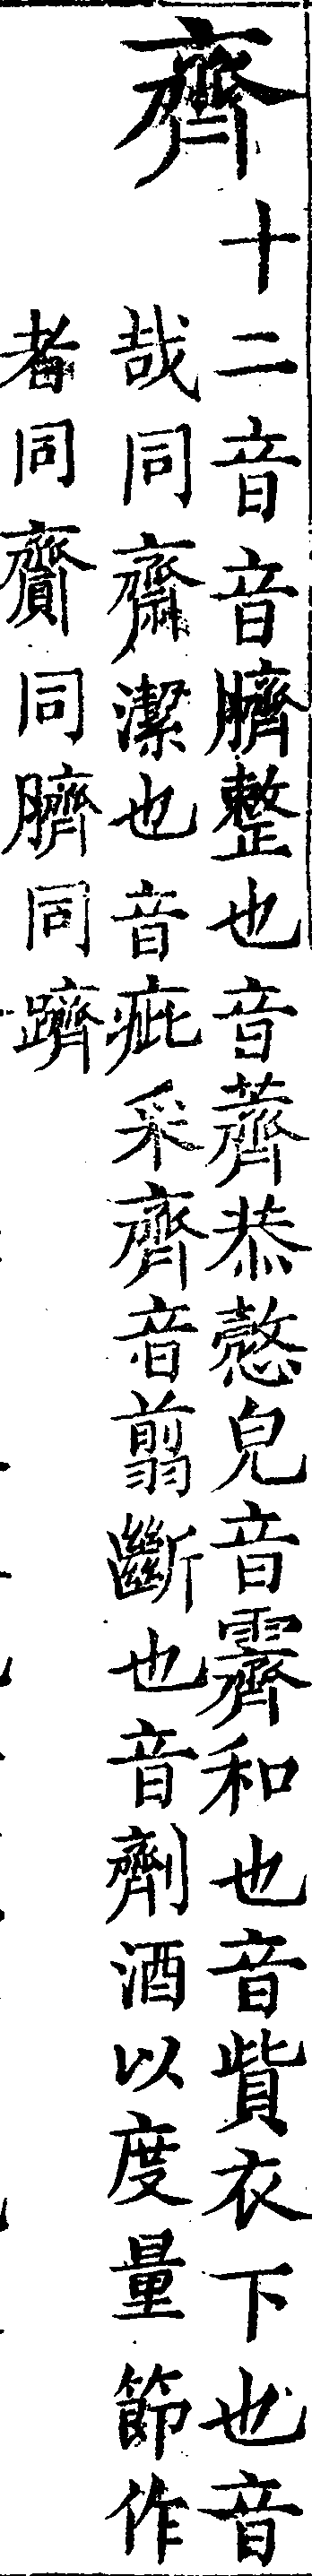 齊
十二音音臍整也音薺恭慤皃音霽和也音貲衣下也音
哉同齋潔也音疵采齊音翦斷也音劑酒以度量節作
者同齎同臍同躋